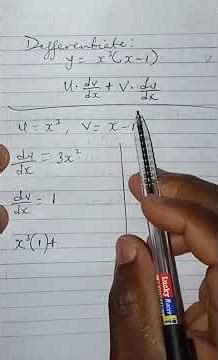 Differentiate:
y = x³(x-1)
U · dv/dx + V · du/dx
u = x³, V = x-1
du/dx = 3x²
dv/dx = 1
x³(1)+
Lucky